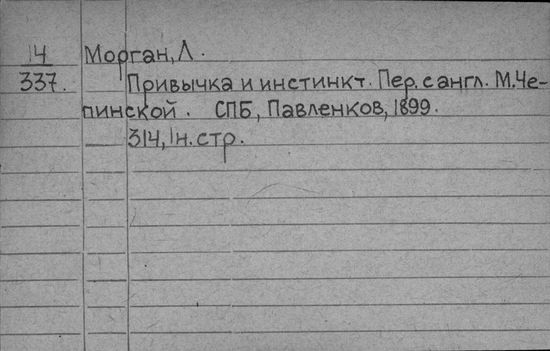 14 Морган, Л.
337. Привычка и инстинкт. Пер. с англ. М. Че-
пинской. СПБ, Павленков, 1899.
314, 1н. стр.